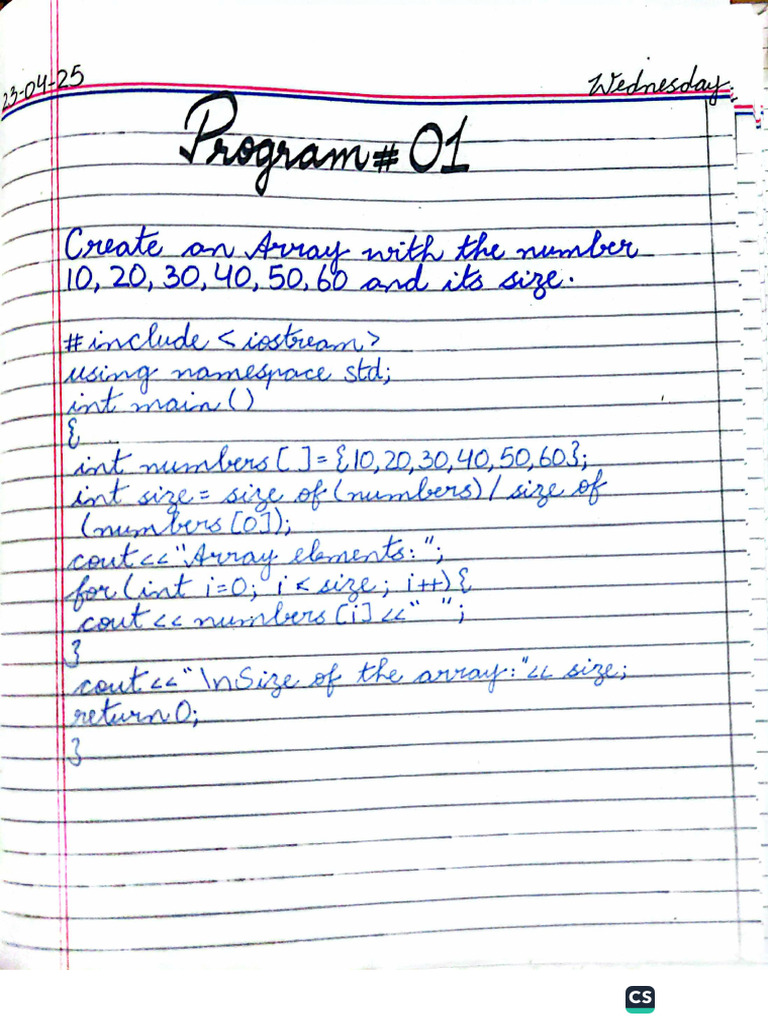 23-04-25
Wednesday
Program # 01
Create an Array with the number
10, 20, 30, 40, 50, 60 and its size.
#include <iostream>
using namespace std;
int main ()
{
int numbers[ ]={10,20,30,40,50,60};
int size = size of (numbers) / size of
(numbers [0]);
cout<<"Array elements:";
for (int i=0; i < size; i++) {
cout << numbers [i] <<" ";
}
cout<<"\nSize of the array:"<< size;
return 0;
}
CS